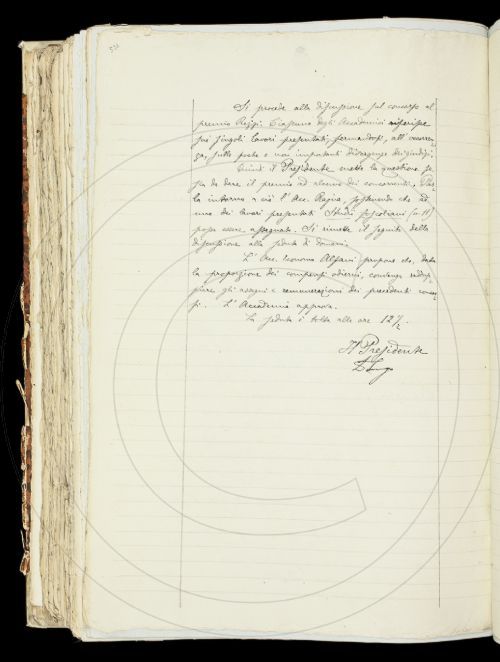 Si procede alla discussione sul concorso al
premio Rezzi. Ciascuno degli Accademici riferisce
sui singoli lavori presentati, fermandosi, all'occorren-
za, sulle poche e non importanti divergenze dei giudizi.
Quindi il Presidente mette la questione se
sia da dare il premio ad alcuno dei concorrenti. Par-
la intorno a ciò l'Acc. Rajna, sostenendo che ad
uno dei lavori presentati Studi foscoliani (n. 11)
possa essere assegnato. Si rimette il seguito della
discussione alla seduta di domani.
L'Acc. Economo Alfani propone che, data
la proporzione dei compensi odierni,
gli assegni e remunerazioni dei precedenti concor-
si. L'Accademia approva.
La seduta è tolta alle ore 12 1/2.
Il Presidente